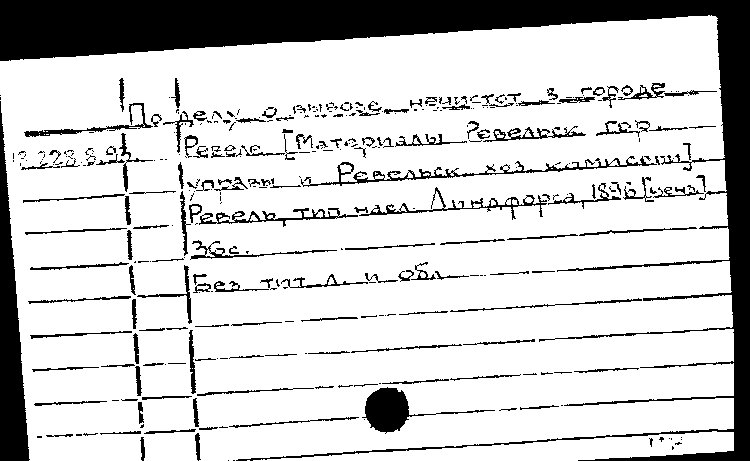 По делу о вывозе нечистот в городе
18.228.8.93. Ревеле [Материалы Ревельск гор.
управы и Ревельск. хоз. комиссии].
Ревель, тип. насл. Линдфорса, 1896 [ценз].
36с.
Без тит. л. и обл.